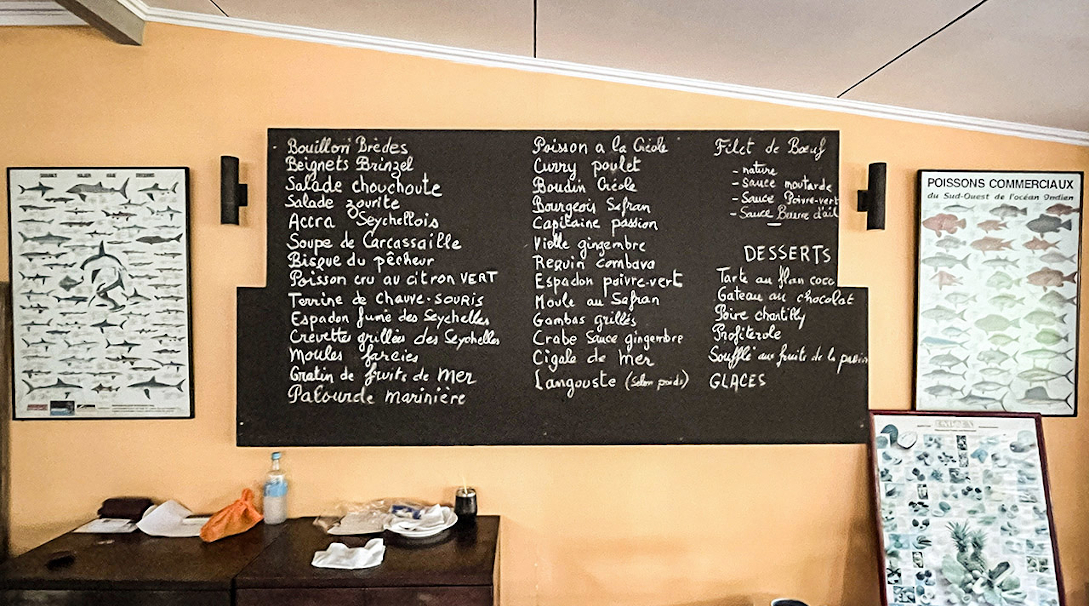 Bouillon Brèdes
Beignets Bringel
Salade chouchoute
Salade zourite
Accra Seychellois
Soupe de Carcassaille
Bisque du pêcheur
Poisson cru au citron VERT
Terrine de chauve-souris
Espadon fumé des Seychelles
Crevettes grillées des Seychelles
Moules farcies
Gratin de fruits de Mer
Palourde marinière
Poisson a la Créole
Curry poulet
Boudin Créole
Bourgeois Safran
Capitaine passion
Vielle gingembre
Requin combava
Espadon poivre-vert
Moule au Safran
Gambas grillés
Crabe Sauce gingembre
Cigale de Mer
Langouste (selon poids)
Filet de Bœuf
- nature
- Sauce moutarde
- Sauce Poivre-vert
- Sauce Beurre d'ail
DESSERTS
Tarte au flan coco
Gateau au chocolat
Poire chantilly
Profiterole
Soufflé aux fruits de la passion
GLACES
POISSONS COMMERCIAUX
du Sud-Ouest de l'océan Indien